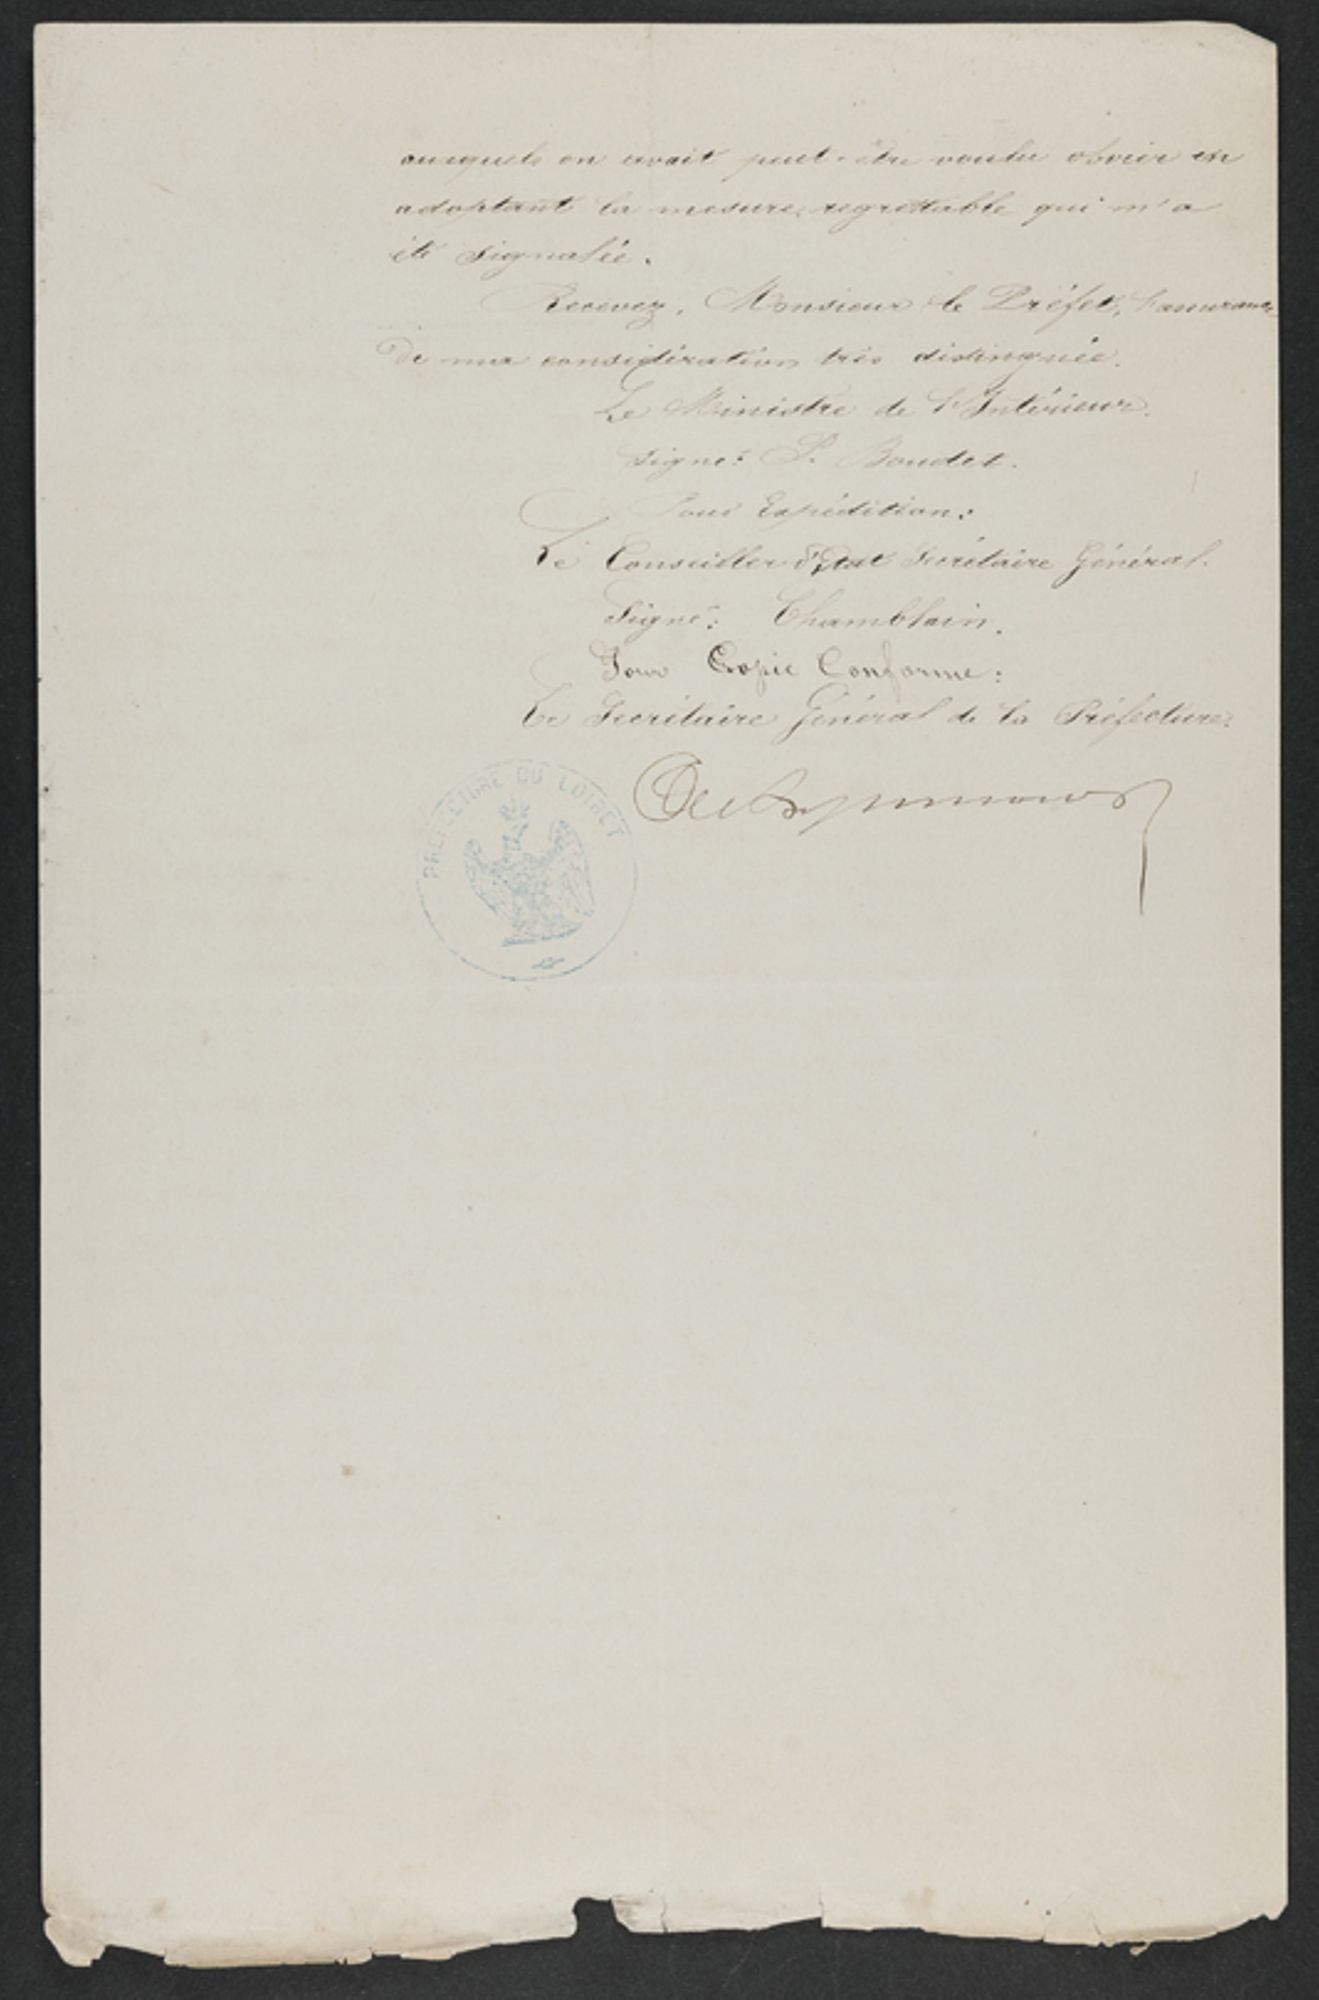 auxquels on avait peut-être voulu obvier en
adoptant la mesure regrettable qui m'a
été signalée.
Recevez, Monsieur le Préfet, l'assurance
de ma considération très distinguée.
Le Ministre de l'Intérieur.
Signé: P. Boudet.
Pour Expédition:
Le Conseiller d'Etat Secrétaire Général.
Signé: Chamblain.
Pour Copie Conforme:
Le Secrétaire Général de la Préfecture.
PREFECTURE DU LOIRET